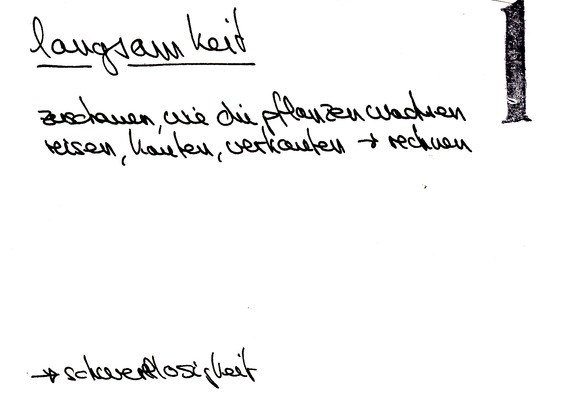 langsamkeit
1
zuschauen, wie die pflanzen wachsen
reisen, kaufen, verkaufen → rechnen
→ schwerelosigkeit